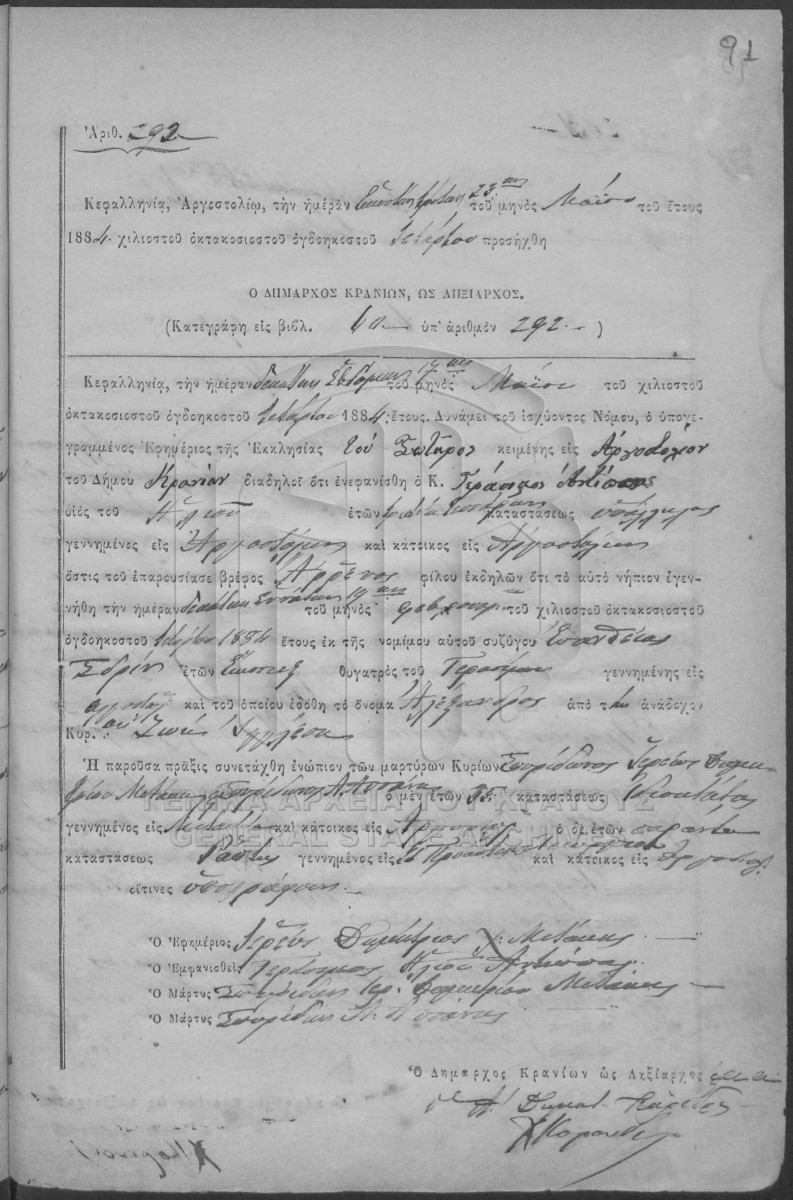 91
Ἀριθ. 292
Κεφαλληνία, Ἀργοστολίῳ, τὴν ἡμέραν Εἰκοστὴν τρίτην 23ην τοῦ μηνὸς Μαΐου τοῦ ἔτους
1884 χιλιοστοῦ ὀκτακοσιοστοῦ ὀγδοηκοστοῦ τετάρτου προσήχθη
Ο ΔΗΜΑΡΧΟΣ ΚΡΑΝΙΩΝ, ΩΣ ΛΗΞΙΑΡΧΟΣ.
(Κατεγράφη εἰς βιβλ. ὑπ' ἀριθμὸν 292 )
Κεφαλληνία, τὴν ἡμέραν δεκάτην ἑβδόμην 17ην τοῦ μηνὸς Μαΐου τοῦ χιλιοστοῦ
ὀκτακοσιοστοῦ ὀγδοηκοστοῦ τετάρτου 1884 ἔτους. Δυνάμει τοῦ ἰσχύοντος Νόμου, ὁ ὑπογε-
γραμμένος Ἐφημέριος τῆς Ἐκκλησίας τοῦ Σωτῆρος κειμένης εἰς Ἀργοστόλιον
τοῦ Δήμου Κρανίων διαδηλοῖ ὅτι ἐνεφανίσθη ὁ Κ. Γεράσιμος Ἀντίπας
υἱὸς τοῦ Ἠλιοῦ ἐτῶν καταστάσεως ὑπάλληλος
γεννημένος εἰς Ἀργοστόλιον καὶ κάτοικος εἰς Ἀργοστόλιον
ὅστις τοῦ ἐπαρουσίασε βρέφος Ἄρρενος φίλου ἐκδηλῶν ὅτι τὸ αὐτὸ νήπιον ἐγεν-
νήθη τὴν ἡμέραν δεκάτην ἐννάτην 19ην τοῦ μηνὸς φεβρουαρ. τοῦ χιλιοστοῦ ὀκτακοσιοστοῦ
ὀγδοηκοστοῦ τετάρτου 1884 ἔτους ἐκ τῆς νομίμου αὐτοῦ συζύγου
ἐτῶν Εἴκοσιεξ θυγατρὸς τοῦ Γερασίμου γεννημένης εἰς
καὶ τοῦ ὁποίου ἐδόθη τὸ ὄνομα Ἀλέξανδρος ἀπὸ τὴν ἀνάδοχον
Κυρ. Ζωὴν
Ἡ παροῦσα πράξις συνετάχθη ἐνώπιον τῶν μαρτύρων Κυρίων Σπυρίδωνος Ἱερέως Δημη-
τρίου Μετάκη Σπυρίδωνος ὁ μὲν ἐτῶν καταστάσεως
γεννημένος εἰς καὶ κάτοικος εἰς ὁ δὲ ἐτῶν σαράντα
καταστάσεως Ράπτης γεννημένος εἰς καὶ κάτοικος εἰς Ἀργοστόλ.
οἵτινες ὑπογράφουν
Ὁ Ἐφημέριος Ἱερεὺς Δημήτριος Μετάκης
Ὁ Ἐμφανισθεὶς Γεράσιμος Ἠλιοῦ Ἀντίπας
Ὁ Μάρτυς Σπυρίδων Ἱερ. Δημητρίου Μετάκης
Ὁ Μάρτυς Σπυρίδων
Ὁ Δήμαρχος Κρανίων ὡς Ληξίαρχος
ΓΕΝΙΚΑ ΑΡΧΕΙΑ ΤΟΥ ΚΡΑΤΟΥΣ
GENERAL STATE ARCHIVES